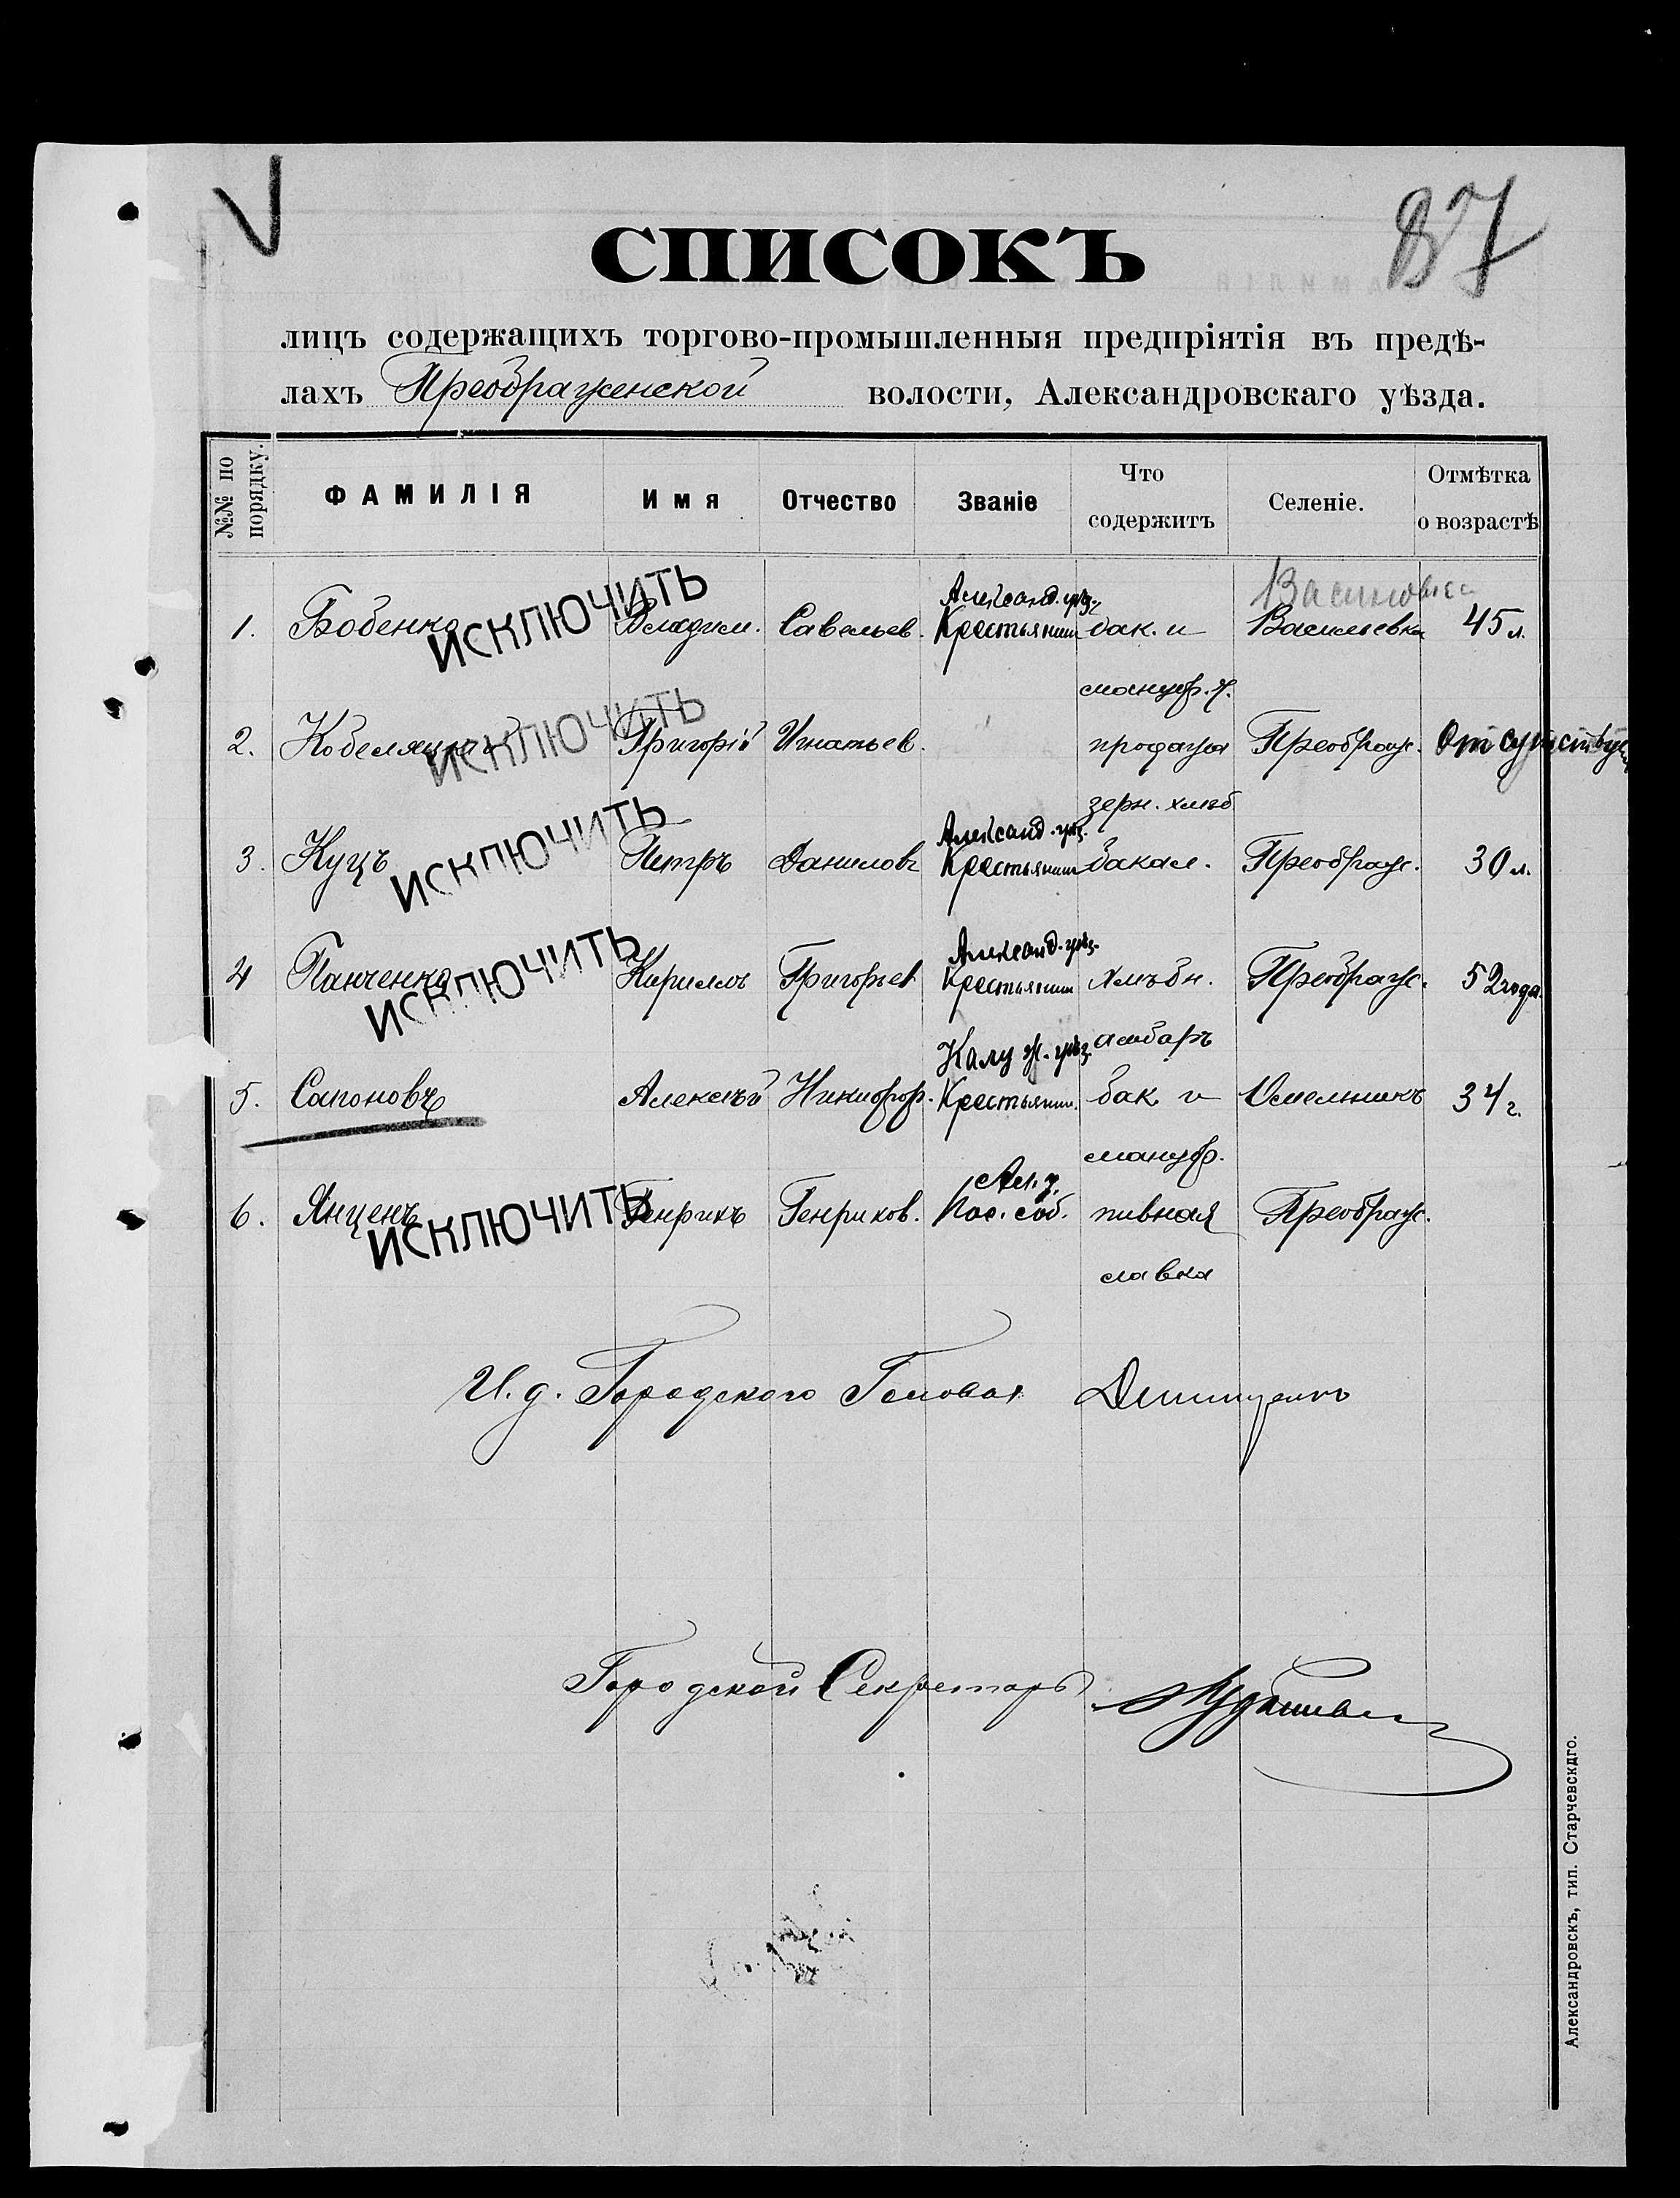 87
СПИСОКЪ
лицъ содержащихъ торгово-промышленныя предпріятія въ предѣ-
лахъ Преображенской волости, Александровскаго уѣзда.
№№ по порядку. ФАМИЛІЯ Имя Отчество Званіе Что содержитъ Селеніе. Отмѣтка о возрастѣ
Александ. уѣз. Васи
1. Бобенко ИСКЛЮЧИТЬ Владим. Савельев. Крестьянин бак. и Васильевка 45 л.
мануф. т.
2. Кобеляцкій ИСКЛЮЧИТЬ Григорій Игнатьев. продажа Преображ. Отсутствует
зерн. хлѣб
Александ. уѣз.
3. Куцъ ИСКЛЮЧИТЬ Петръ Данилов Крестьянин бакал. Преображ. 30 л.
Александ. уѣз.
4 Панченко ИСКЛЮЧИТЬ Кириллъ Григорьев Крестьянин хлѣбн. Преображ. 52 года.
Калуж. уѣз. амбаръ
5. Сапоновъ Алексѣй Никифор. Крестьянин. бак и Омельникъ 34 г.
мануф.
Ал. у.
6. Янценъ ИСКЛЮЧИТЬ Генрихъ Генрихов. Пос. соб. пивная Преображ.
лавка
И. д. Городского Голова
Городской Секретарь
Александровскъ, тип. Старчевскаго.